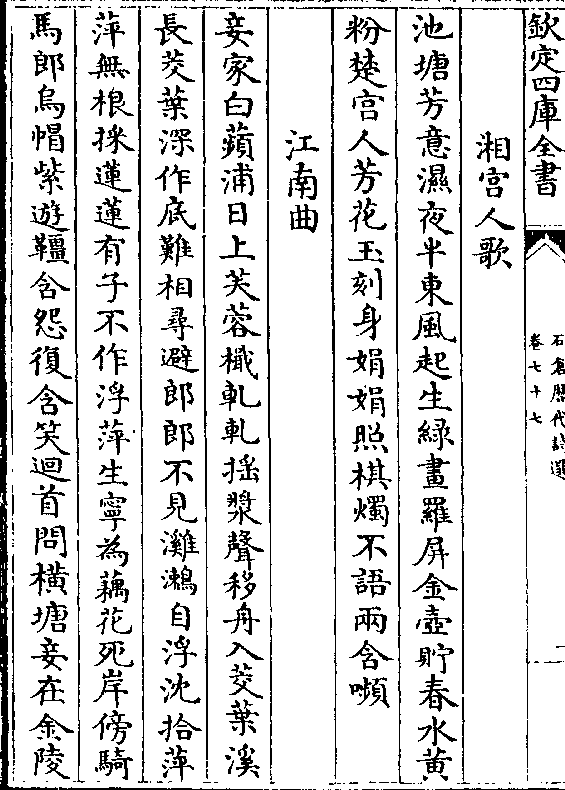 欽定四庫全書
石倉歷代詩選
卷七十七
二
湘宫人歌
池塘芳意濕夜半東風起生綠畫羅屏金壺貯春水黄
粉楚宫人芳花玉刻身娟娟照棋燭不語兩含嚬
江南曲
妾家白蘋浦日上芙蓉檝軋軋揺槳聲移舟入茭葉溪
長茭葉深作底難相尋避郎郎不見㶉鶒自浮沈拾萍
萍無根採蓮蓮有子不作浮萍生寧為藕花死岸傍騎
馬郎烏帽紫遊韁含怨復含笑迴首問橫塘妾在金陵